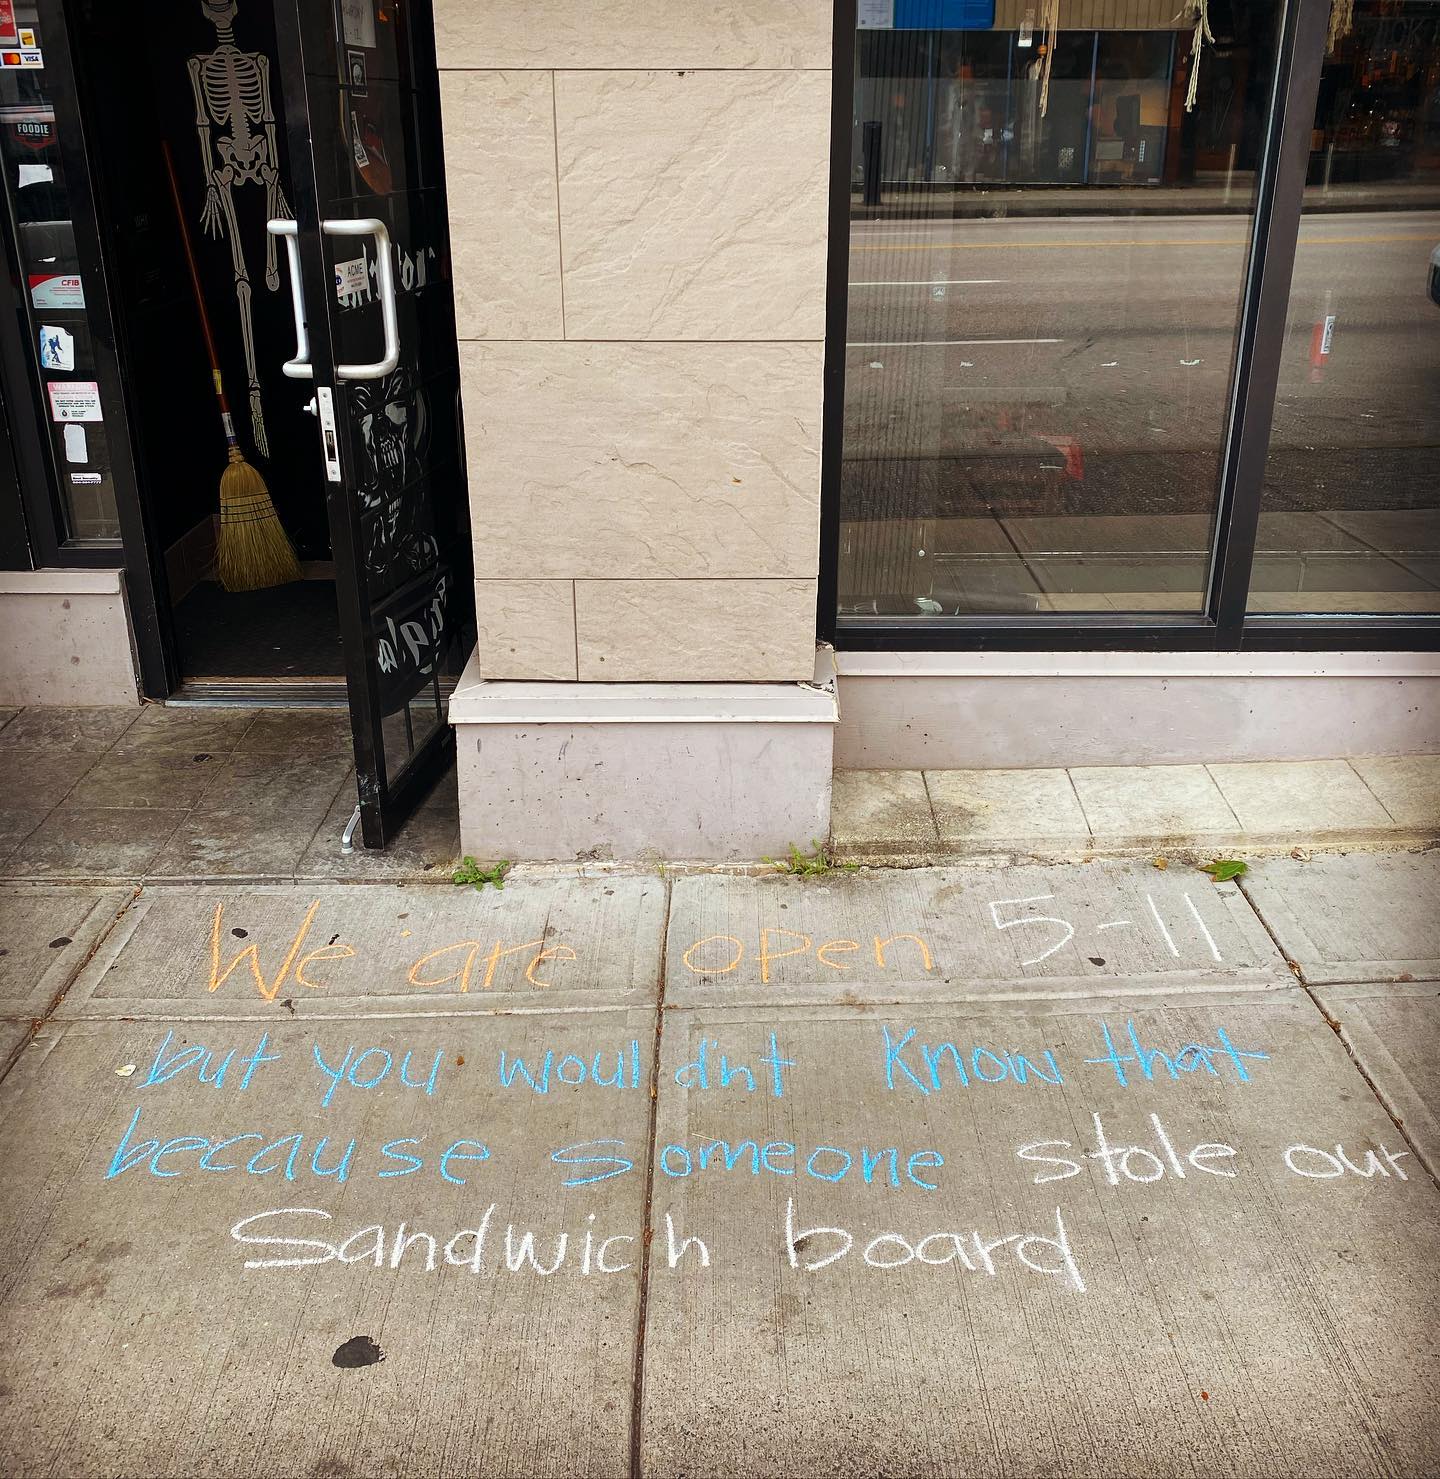 VISA
FOODIE
CFIB
WARNING
ACME
We are open 5-11
but you wouldn't know that
because someone stole our
Sandwich board